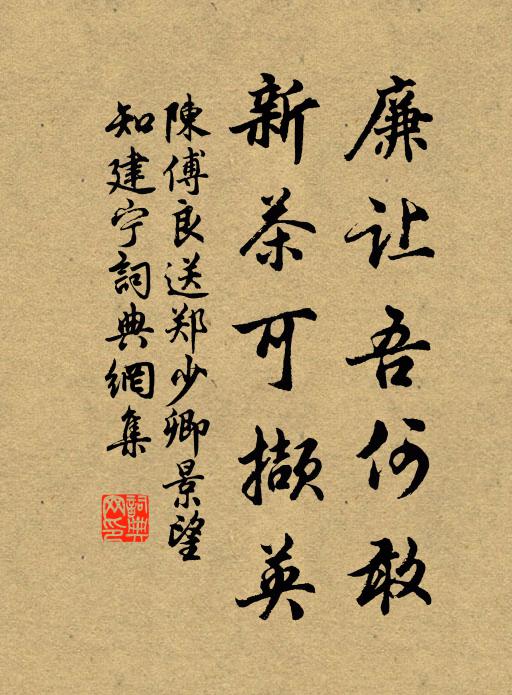 廉让吾何敢
新茶可撷英
陳傅良送郑少卿景望
知建宁詞典網集
詞典网印